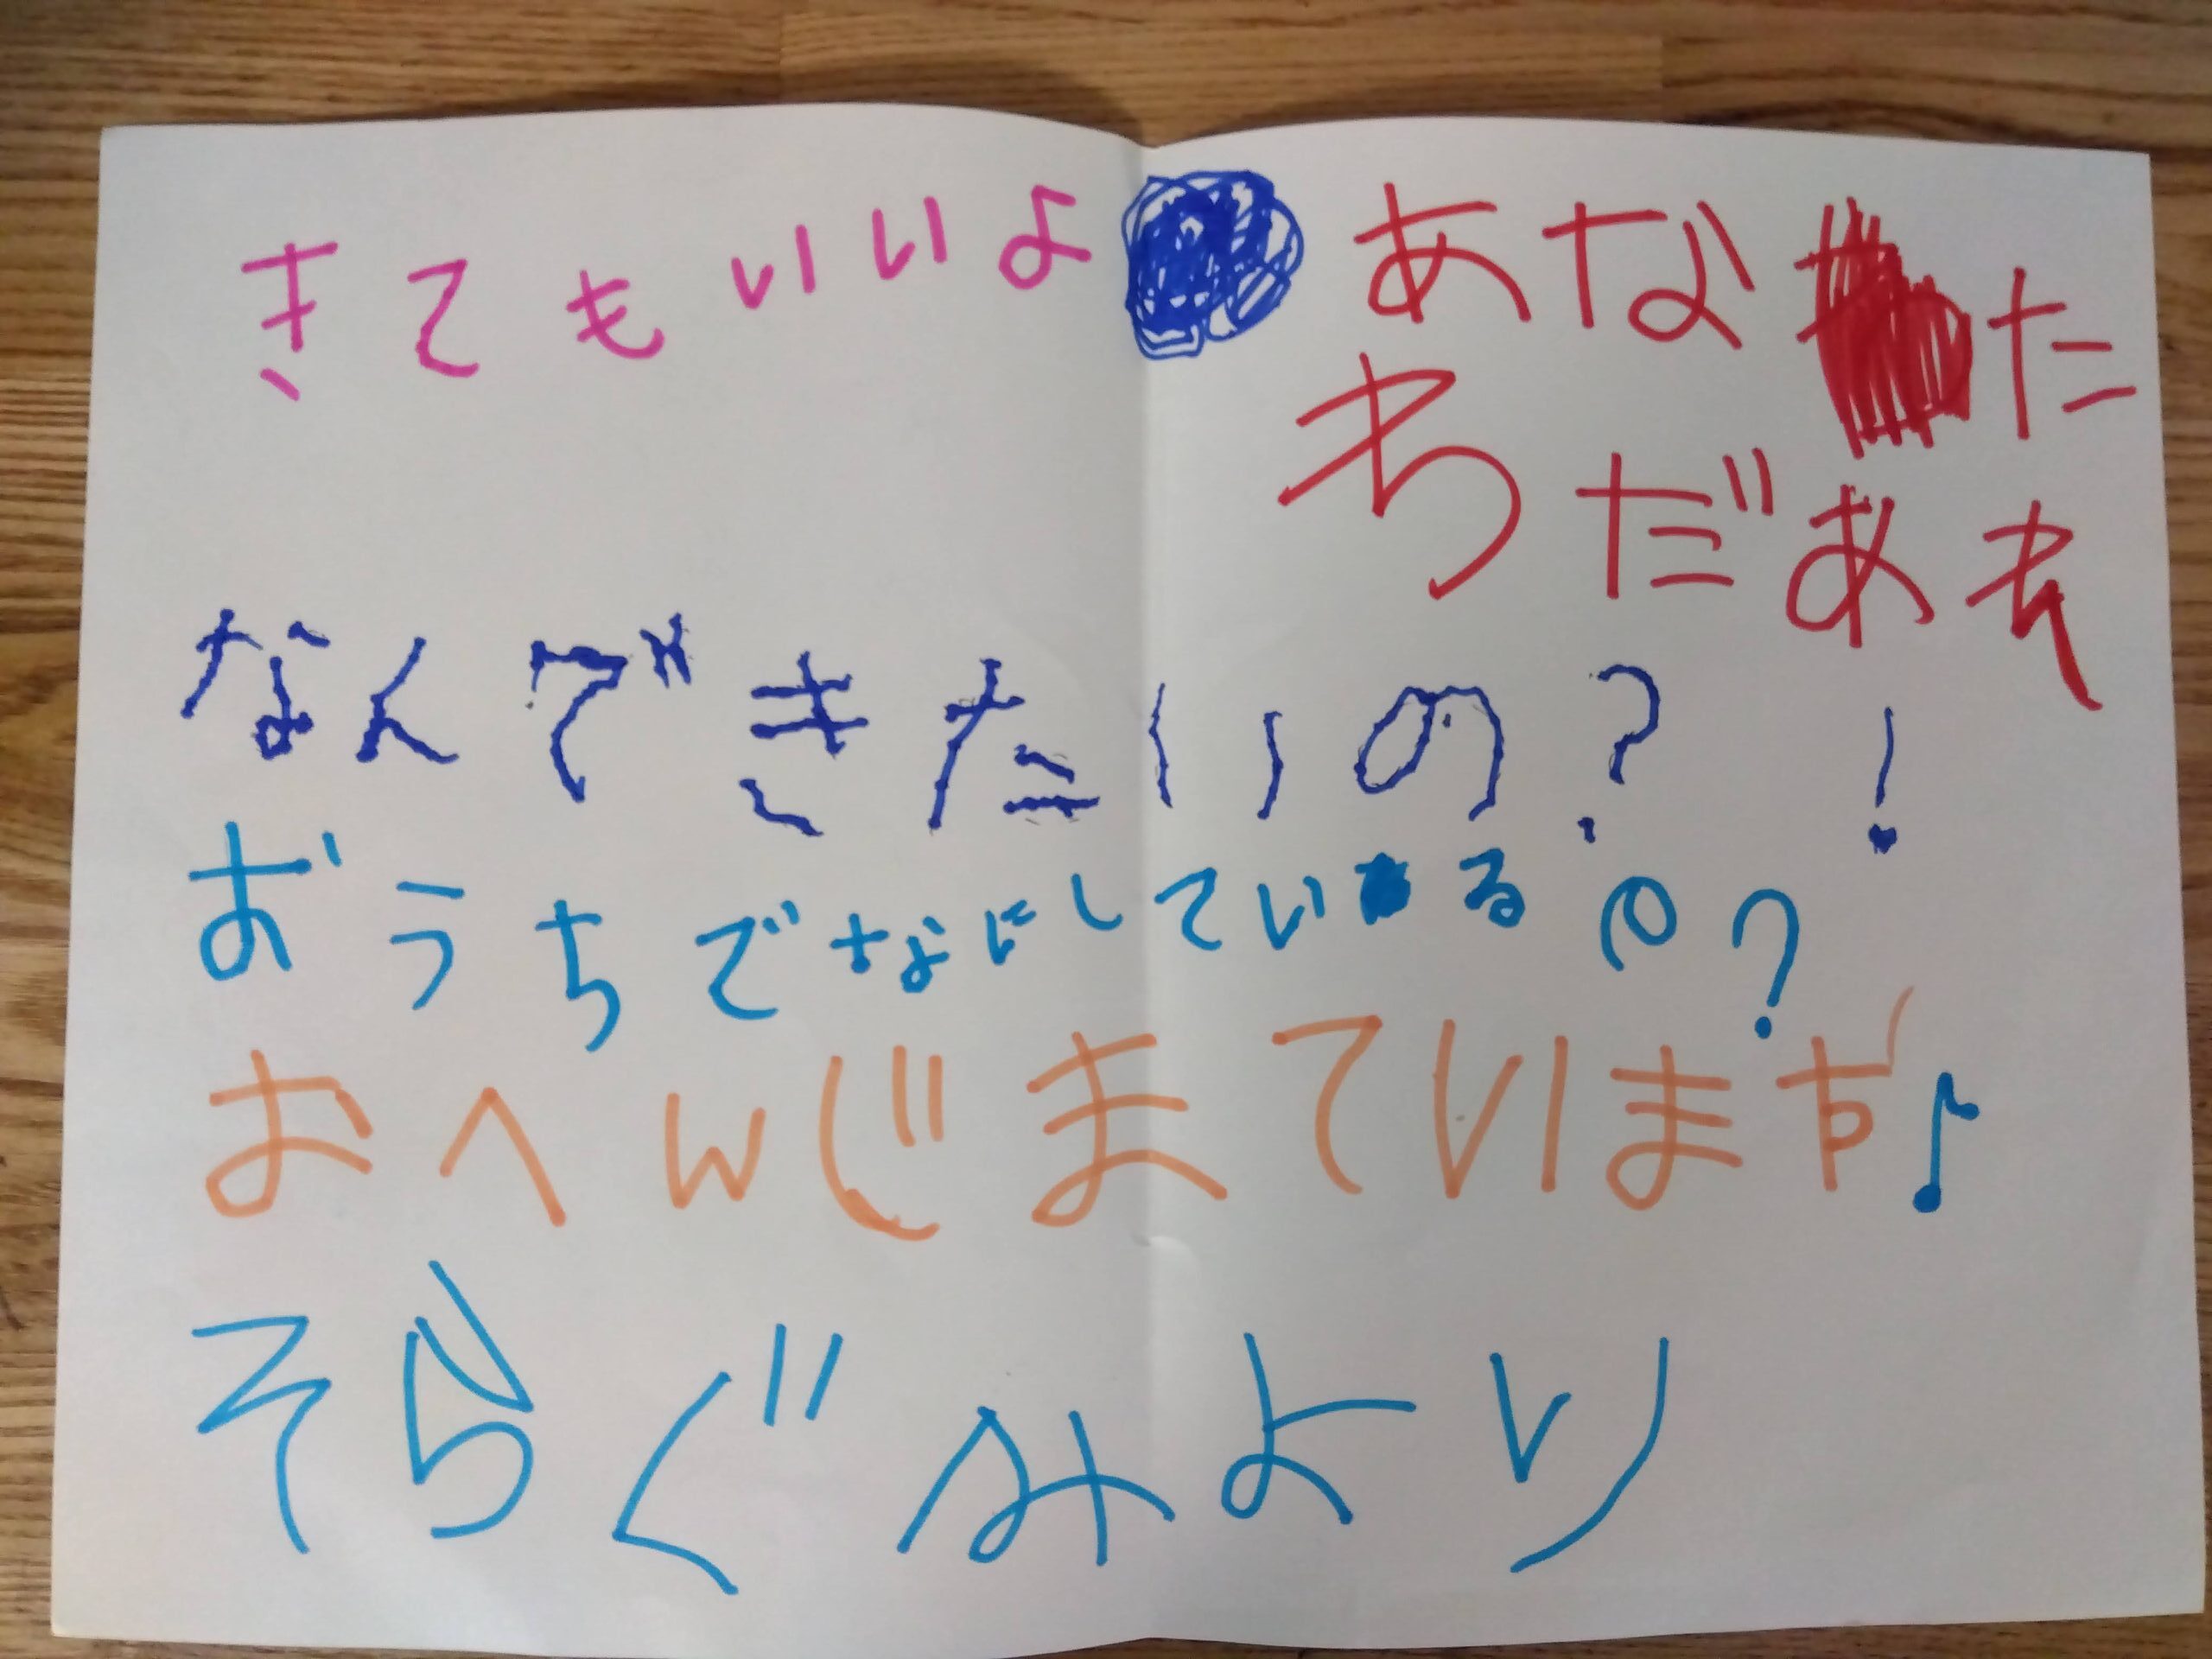 きてもいいよ あなた
わだあれ
なんできたいの？！
おうちでなにしているの？
おへんじまています♪
そらぐみより